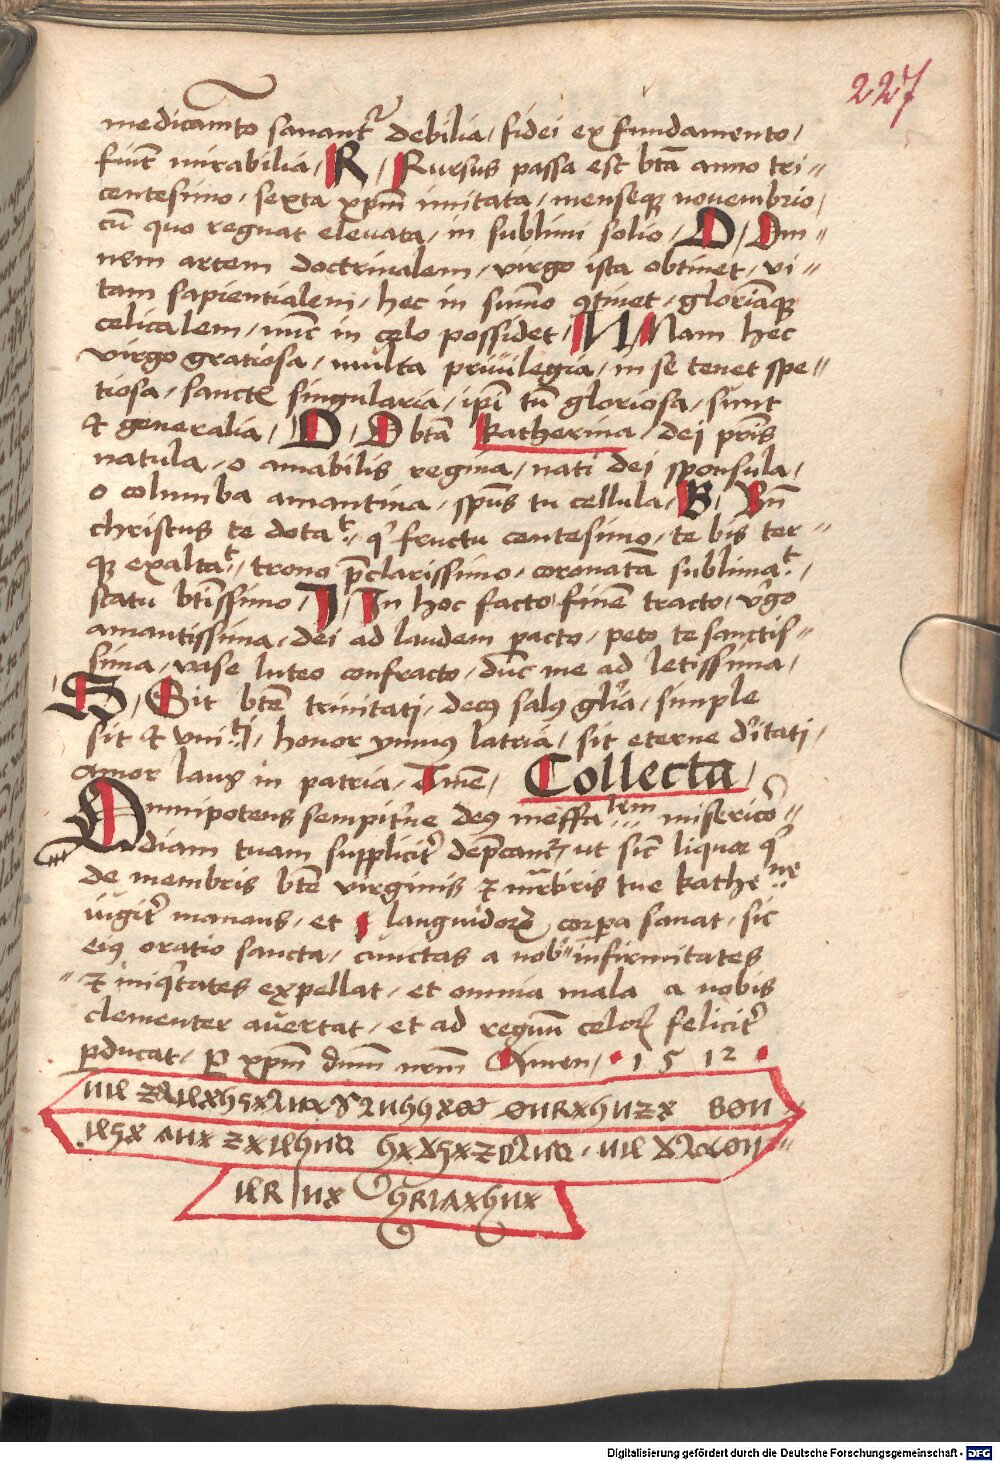 227
medicam̄to sanant᷑ debilia / fidei ex fundamento /
fiūt mirabilia / R / Rursus passa est bt̄a anno tri¬
centesimo / sexta xp̄m imitata / menseqꝫ novembrio /
cū quo regnat eleuata / in sublimi solio / O / Om¬
nem artem doctrinalem / virgo ista obtinet / vi¬
tam sapientialem / hec in sum̄o ꝯtinet / gloriāqꝫ
celicalem / nūc in celo possidet / N / Nam hec
virgo gratiosa / multa priuilegia / in se tenet spe¬
tiosa / sancteꝫ singularia / ip̄i tn̄ gloriosa / sunt
et generalia / O / O bt̄a katherina / dei pr̄is
natula / o amabilis regina / nati dei sponsula /
o columba amantina / sp̄us tu cellula / B / Bn̄
christus te dotat / qͥ fructu centesimo / te bis ter¬
qꝫ exaltat / trono p̄clarissimo / coronatā sublimat /
statu bt̄issimo / J / In hoc facto finē tracto / v̓go
amantissima / dei ad laudem pacto / peto te sanctis¬
sima / vase luteo confracto / duc me ad letissima /
S / Sit bt̄e trinitati / decꝰ salꝰ gl̓ia / simple
sit et vnitj / honor ymnꝰ latria / sit eterne d̓itati /
amor laus in patria / Amē / Collecta /
Omnipotens sempit̓ne deꝰ ineffabilem miserico̓¬
diam tuam suppliciter dep̄camur / ut sic̄ liquor qͥ
de membris bt̄e virginis et mr̄tiris tue katherine
iugit̓ manans / et languidorꝝ corpa sanat / sic
eiꝰ oratio sancta / cunctas a nobis infirmitates
et iniqͥtates expellat / et omnia mala a nobis
clementer auertat / et ad regnū celorꝝ felicit̓
ꝑducat / ꝑ xp̄m dn̄m nr̄m Amen / 1 5 1 2